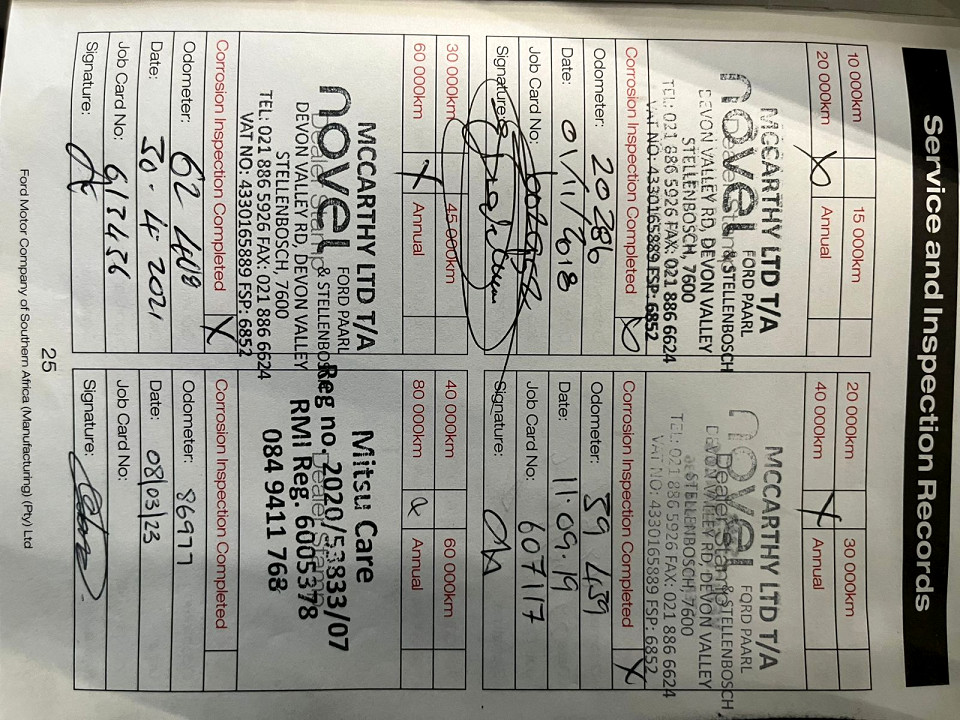 Service and Inspection Records
10 000km 15 000km
20 000km X Annual
MCCARTHY LTD T/A
novel FORD PAARL
Dealer Stamp & STELLENBOSCH
DEVON VALLEY RD, DEVON VALLEY
STELLENBOSCH, 7600
TEL: 021 886 5926 FAX: 021 886 6624
VAT NO: 4330165889 FSP: 6852
Corrosion Inspection Completed X
Odometer: 20286
Date: 01/11/2018
Job Card No:
Signature:
20 000km 30 000km
40 000km X Annual
MCCARTHY LTD T/A
novel FORD PAARL
Dealer Stamp & STELLENBOSCH
DEVON VALLEY RD, DEVON VALLEY
STELLENBOSCH, 7600
TEL: 021 886 5926 FAX: 021 886 6624
VAT NO: 4330165889 FSP: 6852
Corrosion Inspection Completed X
Odometer: 39 459
Date: 11.09.19
Job Card No: 607117
Signature:
30 000km 45 000km
60 000km X Annual
MCCARTHY LTD T/A
novel FORD PAARL
Dealer Stamp & STELLENBOSCH
DEVON VALLEY RD, DEVON VALLEY
STELLENBOSCH, 7600
TEL: 021 886 5926 FAX: 021 886 6624
VAT NO: 4330165889 FSP: 6852
Corrosion Inspection Completed X
Odometer: 62 408
Date: 30.4.2021
Job Card No: 6/32436
Signature:
40 000km 60 000km
80 000km Annual
Mitsu Care
Reg no. 2020/53833/07
Dealer Stamp
RMI Reg. 6005378
084 9411 768
Corrosion Inspection Completed
Odometer: 86977
Date: 08/03/23
Job Card No:
Signature:
25
Ford Motor Company of Southern Africa (Manufacturing) (Pty) Ltd